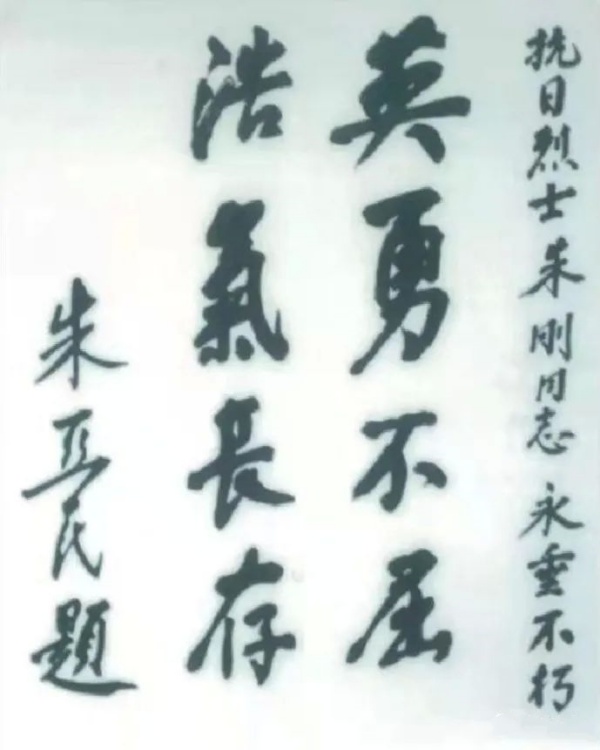 抗日烈士朱刚同志 永垂不朽
英勇不屈
浩氣長存
朱亞民題